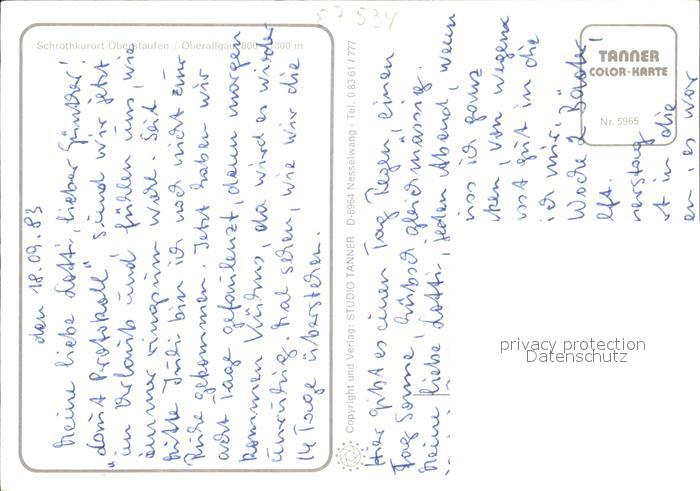 57 534
Schrothkurort Oberstaufen / Oberallgäu 800 - 800 m
den 18.09.83
Meine liebe Lotti, lieber Günther!
"damit Protokoll" sind wir jetzt
im Urlaub und fühlen uns, wie
immer ringsum wohl. Seit
Mitte Juli bin ich noch nicht zur
Ruhe gekommen. Jetzt haben wir
acht Tage gefaulenzt, denn morgen
kommen Kühns, da wird es wieder
unruhig. Mal sehen, wie wir die
14 Tage überstehen.
Copyright und Verlag: STUDIO TANNER D-8964 Nesselwang - Tel. 0 83 61 / 777
Hier gibt es einen Tag Regen, einen
Tag Sonne, hübsch gleichmässig.
Meine liebe Lotti, jeden Abend, wenn
ich ganz
von wegen
gut in die
ich mir
Woche 2
ft.
in die
es war
TANNER
COLOR-KARTE
Nr. 5965
privacy protection
Datenschutz